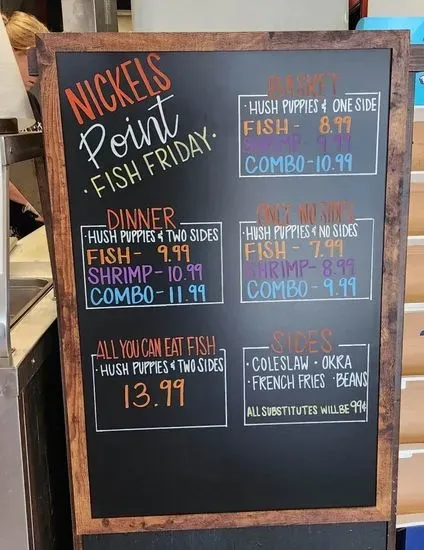 NICKELS
Point
·FISH FRIDAY·
BASKET
·HUSH PUPPIES & ONE SIDE
FISH - 8.99
SHRIMP - 9.99
COMBO - 10.99
DINNER
·HUSH PUPPIES & TWO SIDES
FISH - 9.99
SHRIMP - 10.99
COMBO - 11.99
ONLY NO SIDES
·HUSH PUPPIES & NO SIDES
FISH - 7.99
SHRIMP - 8.99
COMBO - 9.99
ALL YOU CAN EAT FISH
·HUSH PUPPIES & TWO SIDES
13.99
SIDES
·COLESLAW ·OKRA
·FRENCH FRIES ·BEANS
ALL SUBSTITUTES WILL BE 99¢